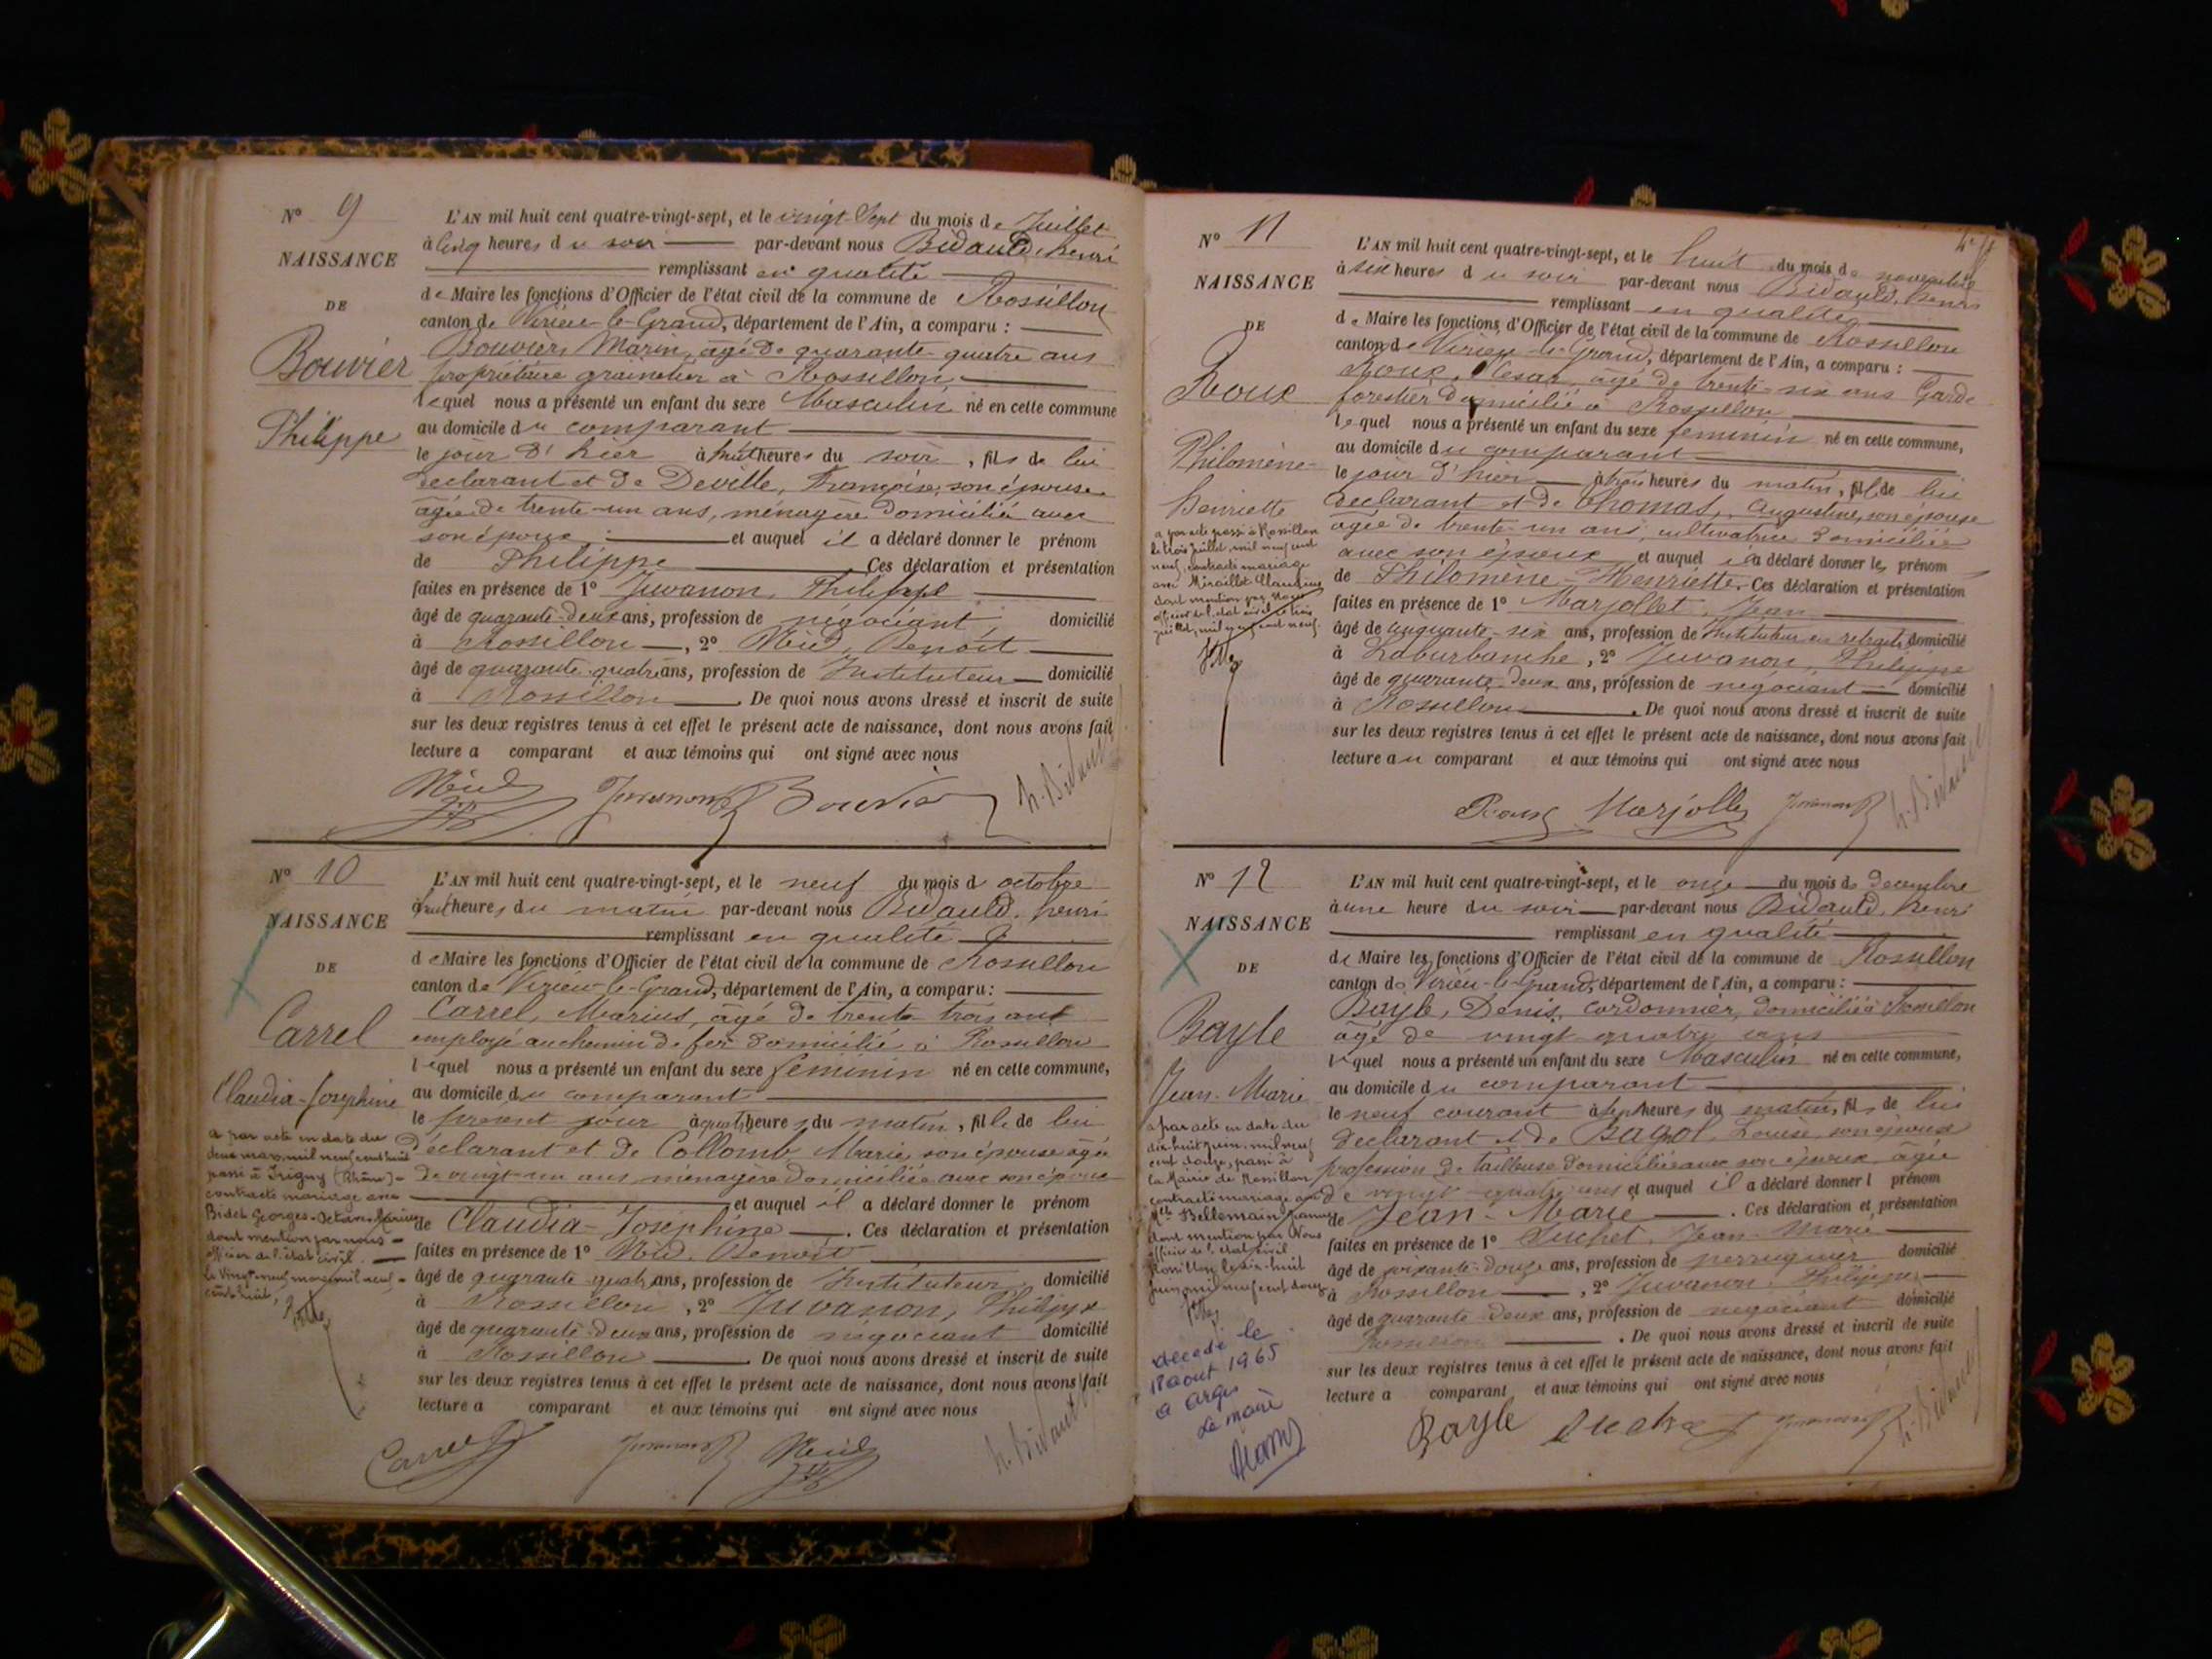 N° 9
NAISSANCE
DE
Bouvier
Philippe
L'AN mil huit cent quatre-vingt-sept, et le vingt-sept du mois de Juillet
à cinq heures du soir par-devant nous Bidauld, henri
remplissant en qualité
de Maire les fonctions d'Officier de l'état civil de la commune de Rossillon
canton de Virieu-le-Grand, département de l'Ain, a comparu :
Bouvier, Marin, âgé de quarante-quatre ans
propriétaire grainetier à Rossillon,
lequel nous a présenté un enfant du sexe Masculin né en cette commune
au domicile du comparant
le jour d'hier à huit heures du soir, fils de lui
déclarant et de Deville, Françoise, son épouse
âgée de trente-un ans, ménagère domiciliée avec
son époux, et auquel il a déclaré donner le prénom
de Philippe Ces déclaration et présentation
faites en présence de 1° Juvanon, Philippe
âgé de quarante-deux ans, profession de négociant, domicilié
à Rossillon, 2° Benoit
âgé de quarante-quatre ans, profession de Instituteur domicilié
à Rossillon. De quoi nous avons dressé et inscrit de suite
sur les deux registres tenus à cet effet le présent acte de naissance, dont nous avons fait
lecture a comparant et aux témoins qui ont signé avec nous
Juvanon Bouvier h. Bidauld
N° 10
NAISSANCE
DE
Carrel
Claudia-Josephine
a par acte en date du
deux mars mil neuf cent huit
passé à Irigny (Rhône)
contracté mariage avec
Bidet Georges-Octave-Marius
dont mention par nous
officier de l'état civil.
le vingt-neuf mars mil neuf
cent huit,
L'AN mil huit cent quatre-vingt-sept, et le neuf du mois d octobre
à huit heures du matin par-devant nous Bidauld, henri
remplissant en qualité
de Maire les fonctions d'Officier de l'état civil de la commune de Rossillon
canton de Virieu-le-Grand, département de l'Ain, a comparu :
Carrel, Marius, âgé de trente-trois ans
employé au chemin de fer domicilié à Rossillon
lequel nous a présenté un enfant du sexe féminin né en cette commune,
au domicile du comparant
le présent jour à quatre heures du matin, fille de lui
déclarant et de Collomb, Marie, son épouse âgée
de vingt-un ans, ménagère domiciliée avec son époux
et auquel il a déclaré donner le prénom
de Claudia-Joséphine. Ces déclaration et présentation
faites en présence de 1° Benoit
âgé de quarante-quatre ans, profession de Instituteur, domicilié
à Rossillon, 2° Juvanon, Philippe
âgé de quarante-deux ans, profession de négociant domicilié
à Rossillon. De quoi nous avons dressé et inscrit de suite
sur les deux registres tenus à cet effet le présent acte de naissance, dont nous avons fait
lecture a comparant et aux témoins qui ont signé avec nous
Carrel Juvanon h. Bidauld
N° 11
NAISSANCE
DE
Roux
Philomène-
henriette
a par acte passé à Rossillon
le trois juillet, mil neuf cent
neuf, contracté mariage
avec Miraillet Claudius
dont mention par Nous
officier de l'état civil le trois
juillet, mil neuf cent neuf.
L'AN mil huit cent quatre-vingt-sept, et le huit du mois de novembre
à six heures du soir par-devant nous Bidauld, henri
remplissant en qualité
de Maire les fonctions d'Officier de l'état civil de la commune de Rossillon
canton de Virieu-le-Grand, département de l'Ain, a comparu :
Roux, Cesar, âgé de trente-six ans Garde
forestier domicilié à Rossillon
lequel nous a présenté un enfant du sexe féminin né en cette commune,
au domicile du comparant
le jour d'hier à trois heures du matin, fille de lui
déclarant et de Thomas, Augustine, son épouse
âgée de trente-un ans, cultivatrice domiciliée
avec son époux et auquel il a déclaré donner les prénom
de Philomène-Henriette. Ces déclaration et présentation
faites en présence de 1° Marjollet, Jean
âgé de cinquante-six ans, profession de Instituteur en retraite, domicilié
à Laburbanche, 2° Juvanon, Philippe
âgé de quarante-deux ans, profession de négociant domicilié
à Rossillon. De quoi nous avons dressé et inscrit de suite
sur les deux registres tenus à cet effet le présent acte de naissance, dont nous avons fait
lecture au comparant et aux témoins qui ont signé avec nous
Roux Marjollet Juvanon h. Bidauld
N° 12
NAISSANCE
DE
Bayle
Jean-Marie
a par acte en date du
dix-huit juin, mil neuf
cent douze, passé à
la Mairie de Rossillon
contracté mariage avec
Mlle Bellemain Jeanne
dont mention par Nous
officier de l'état civil
Rossillon le dix-huit
juin, mil neuf cent douze
décédé le
18 aout 1965
a Argis
Le maire
L'AN mil huit cent quatre-vingt-sept, et le onze du mois de décembre
à une heure du soir par-devant nous Bidauld, henri
remplissant en qualité
de Maire les fonctions d'Officier de l'état civil de la commune de Rossillon
canton de Virieu-le-Grand, département de l'Ain, a comparu :
Bayle, Denis, cordonnier, domicilié à Rossillon
âgé de vingt-quatre ans
lequel nous a présenté un enfant du sexe Masculin né en cette commune,
au domicile du comparant
le neuf courant à sept heures du matin, fils de lui
déclarant et de Louise, son épouse
profession de tailleuse domiciliée avec son époux, âgée
de vingt-quatre ans et auquel il a déclaré donner l prénom
de Jean-Marie. Ces déclaration et présentation
faites en présence de 1° Suchet, Jean-Marie
âgé de soixante-douze ans, profession de perruquier domicilié
à Rossillon, 2° Juvanon, Philippe
âgé de quarante-deux ans, profession de négociant domicilié
Rossillon. De quoi nous avons dressé et inscrit de suite
sur les deux registres tenus à cet effet le présent acte de naissance, dont nous avons fait
lecture a comparant et aux témoins qui ont signé avec nous
Bayle Suchet Juvanon h. Bidauld